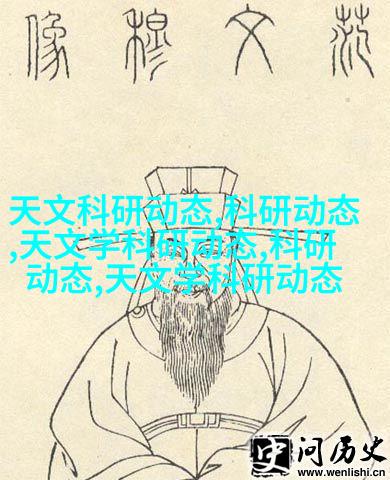 范文穆像
天文科研动态,科研动态
,天文学科研动态,科研
动态,天文学科研动态
史 问历史
www.wenlishi.cn